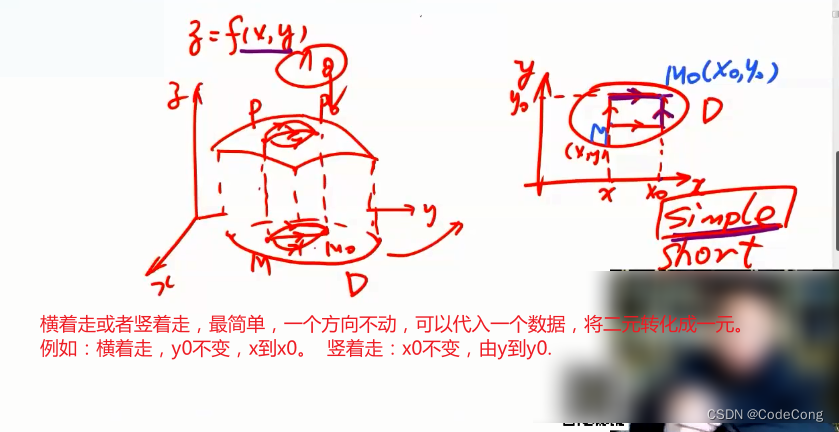 z = f(x, y)
z
P
P0
y
x
M
M0
D
y
M0(x0, y0)
y0
D
M
(x, y)
x
x0
x
simple
short
横着走或者竖着走，最简单，一个方向不动，可以代入一个数据，将二元转化成一元。
例如：横着走，y0不变，x到x0。 竖着走：x0不变，由y到y0.
CSDN @CodeCong